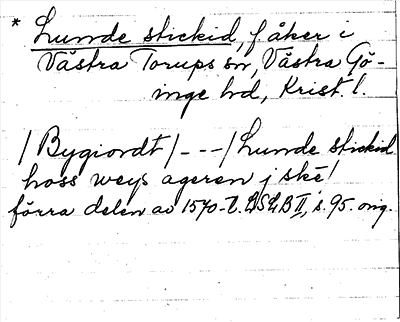 * Lunde stickid, f åker i
Västra Torups sn, Västra Gö-
inge hd, Krist. l.
/Bygiordt/---/Lunde stickid
hoss weys ageren j skē/
förra delen av 1570-t. LSLB II, s. 95. orig.